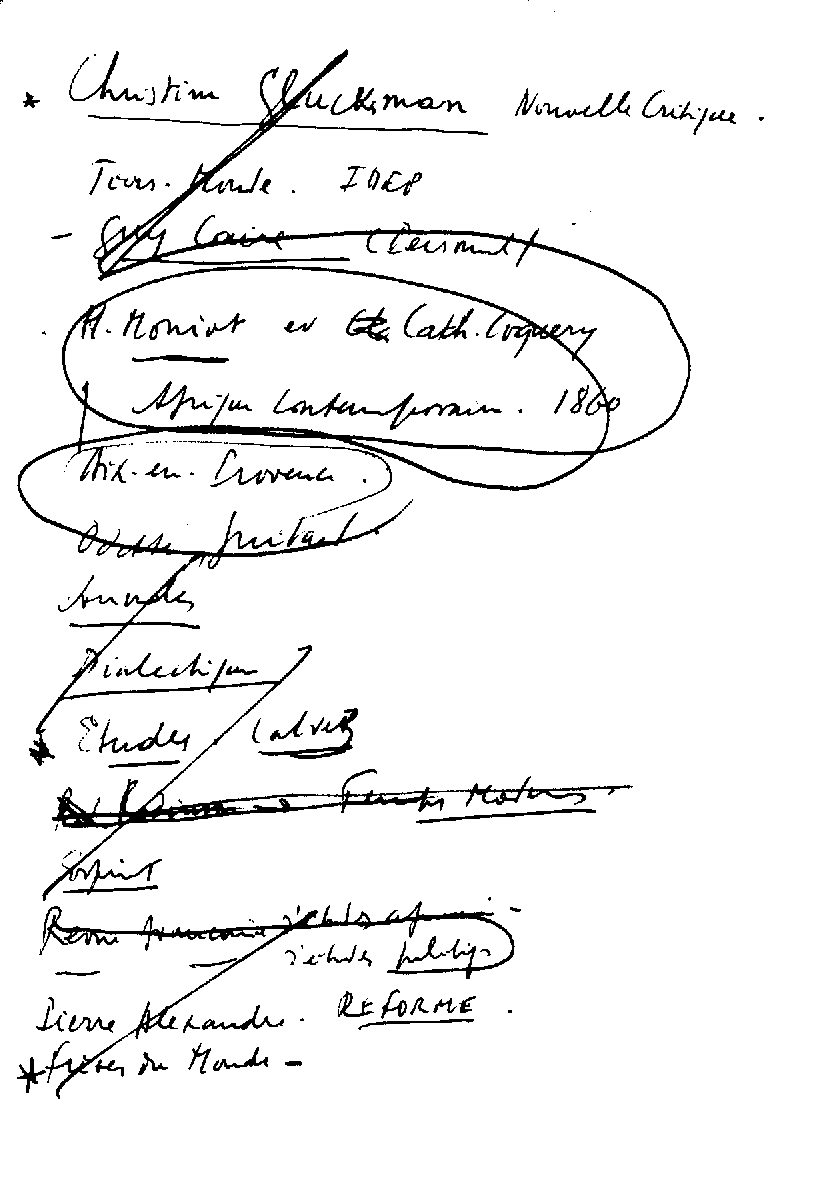 * Christine Glucksman Nouvelle Critique.
Tiers-Monde. IDEP
- Guy Caire (Personnel)
H. Moniot et Cath. Coquery
Afrique Contemporaine. 1860
Aix-en-Provence.
Odette Guitard.
Annales
Dialectiques
* Etudes. Calvez
Temps Modernes.
Esprit
Revue française d'études africaines -
d'études politiqs
Pierre Alexandre. REFORME.
* Frères du Monde -